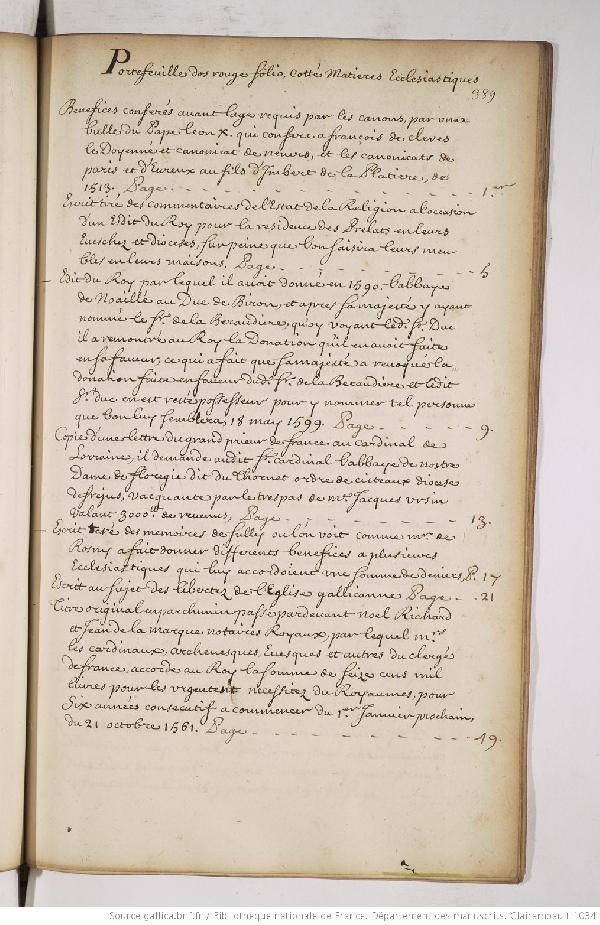 Portefeuille dos rouge folio, Cotté Matieres Ecclesiastiques
389
Benefices conferés auant lage requis par les canons, par vnix
bulle du Pape Leon X. qui confere a françois de cleves
le Doyenné et canonicat de nevers, et les canonicats de
paris et d'Evreux au fils d'Imbert de la Platiere, de
1513. Page 1.er
Ecrit tiré des commentaires de l'Estat de la Religion a l'occasion
d'un Edit du Roy pour la residence des Prelats en leurs
Eveschez et dioceses, sur peine que l'on saisira leurs meu
bles en leurs maisons. Page 5
Edit du Roy par lequel il auoit donné en 1590. l'abbaye
de Noaillé au Duc de Biron, et apres sa majesté y ayant
nommé le Sr. de la Beraudiere, quoy voyant led. Sr. Duc
il a remontré au Roy la Donation qu'il en auoit faite
en sa faveur, ce qui a fait que sa majesté a revoqué la
donation faite en faveur du d. Sr. de la Beraudiere et ledit
Sr. duc en est resté possesseur pour y nommer tel personne
que bon luy semblera, 18 may 1599. Page 9.
Copie d'une lettre du grand prieur de france au cardinal de
Lorraine, il demande audit Sr. cardinal l'abbaye de nostre
Dame de floregie dit du Thoronet ordre de citeaux diocese
de frejus, vacquante par le trespas de Mre. Jacques vrsin
valant 3000tt de revenus, Page 13.
Ecrit tiré des memoires de sully ou l'on voit comme mr. de
Rosny a fait donner differents benefices a plusieurs
Ecclesiastiques qui luy accordoient vne somme de deniers, P. 17
Ecrit au sujet des libertez de l'Eglise gallicanne Page 21
Titre original en parchemin passé pardevant Noel Richard
et Jean de la marque notaires Royaux, par lequel mrs.
les cardinaux, archevesques, Evesques et autres du clergé
de france, accorde au Roy la somme de seize cens mil
livres pour les vrgentent necessitez du Royaumes, pour
six années consecutif a commencer du 1.er Janvier prochain,
du 21 octobre 1561. Page 49.
Source gallica.bnf.fr / Bibliothèque nationale de France. Département des manuscrits. Clairambault 1034